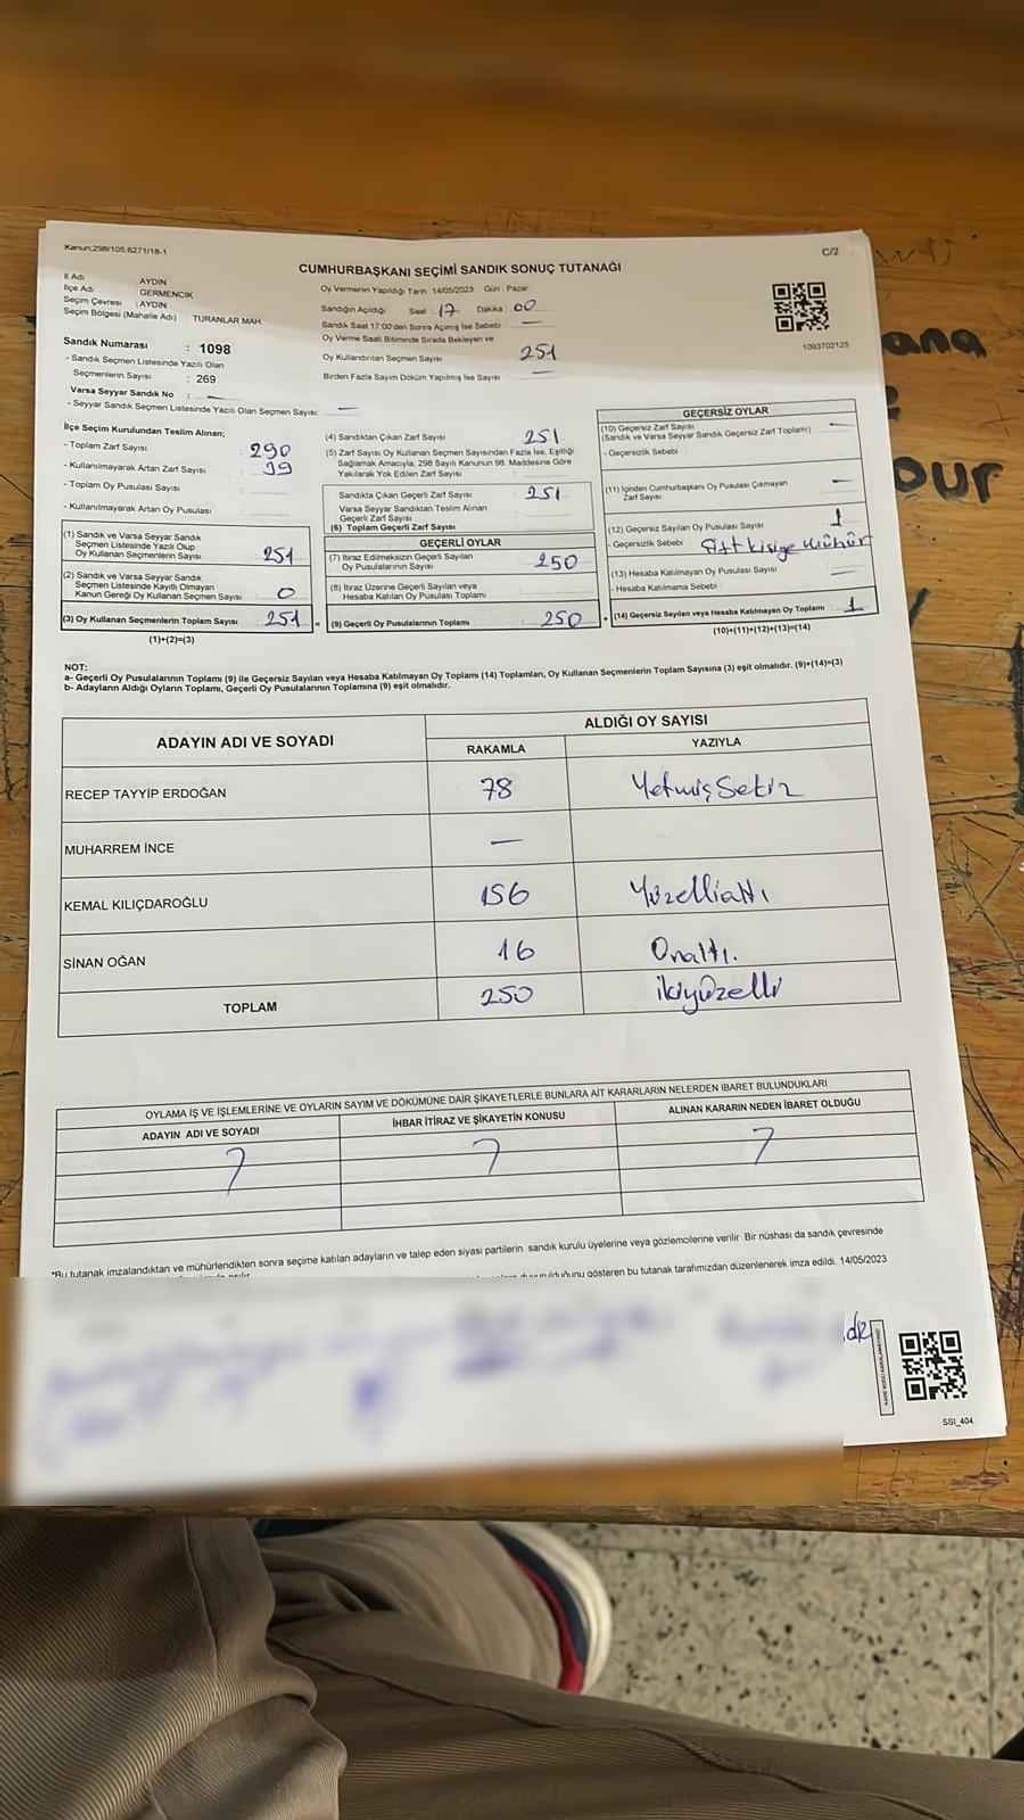 Kanun:298/105,6271/18-1
C/2
CUMHURBAŞKANI SEÇİMİ SANDIK SONUÇ TUTANAĞI
İl Adı AYDIN
İlçe Adı GERMENCİK
Seçim Çevresi : AYDIN
Seçim Bölgesi (Mahalle Adı) TURANLAR MAH.
Sandık Numarası : 1098
- Sandık Seçmen Listesinde Yazılı Olan
Seçmenlerin Sayısı : 269
Varsa Seyyar Sandık No : —
- Seyyar Sandık Seçmen Listesinde Yazılı Olan Seçmen Sayısı: —
Oy Vermenin Yapıldığı Tarih: 14/05/2023 Gün : Pazar
Sandığın Açıldığı Saat 17 Dakika 00
Sandık Saat 17:00'den Sonra Açılmış İse Sebebi —
Oy Verme Saati Bitiminde Sırada Bekleyen ve
Oy Kullandırılan Seçmen Sayısı 251
Birden Fazla Sayım Döküm Yapılmış İse Sayısı —
1093702125
İlçe Seçim Kurulundan Teslim Alınan;
- Toplam Zarf Sayısı 290
- Kullanılmayarak Artan Zarf Sayısı 39
- Toplam Oy Pusulası Sayısı
- Kullanılmayarak Artan Oy Pusulası
(1) Sandık ve Varsa Seyyar Sandık
Seçmen Listesinde Yazılı Olup
Oy Kullanan Seçmenlerin Sayısı 251
(2) Sandık ve Varsa Seyyar Sandık
Seçmen Listesinde Kayıtlı Olmayan
Kanun Gereği Oy Kullanan Seçmen Sayısı 0
(3) Oy Kullanan Seçmenlerin Toplam Sayısı 251
(1)+(2)=(3)
(4) Sandıktan Çıkan Zarf Sayısı 251
(5) Zarf Sayısı Oy Kullanan Seçmen Sayısından Fazla İse, Eşitliği
Sağlamak Amacıyla, 298 Sayılı Kanunun 98. Maddesine Göre
Yakılarak Yok Edilen Zarf Sayısı
Sandıkta Çıkan Geçerli Zarf Sayısı 251
Varsa Seyyar Sandıktan Teslim Alınan
Geçerli Zarf Sayısı
(6) Toplam Geçerli Zarf Sayısı
GEÇERLİ OYLAR
(7) İtiraz Edilmeksizin Geçerli Sayılan
Oy Pusulalarının Sayısı 250
(8) İtiraz Üzerine Geçerli Sayılan veya
Hesaba Katılan Oy Pusulası Toplamı
= (9) Geçerli Oy Pusulalarının Toplamı 250
GEÇERSİZ OYLAR
(10) Geçersiz Zarf Sayısı —
(Sandık ve Varsa Seyyar Sandık Geçersiz Zarf Toplamı)
- Geçersizlik Sebebi
(11) İçinden Cumhurbaşkanı Oy Pusulası Çıkmayan —
Zarf Sayısı
(12) Geçersiz Sayılan Oy Pusulası Sayısı 1
- Geçersizlik Sebebi mühür
(13) Hesaba Katılmayan Oy Pusulası Sayısı —
- Hesaba Katılmama Sebebi
+ (14) Geçersiz Sayılan veya Hesaba Katılmayan Oy Toplamı 1
(10)+(11)+(12)+(13)=(14)
NOT:
a- Geçerli Oy Pusulalarının Toplamı (9) ile Geçersiz Sayılan veya Hesaba Katılmayan Oy Toplamı (14) Toplamları, Oy Kullanan Seçmenlerin Toplam Sayısına (3) eşit olmalıdır. (9)+(14)=(3)
b- Adayların Aldığı Oyların Toplamı, Geçerli Oy Pusulalarının Toplamına (9) eşit olmalıdır.
ADAYIN ADI VE SOYADI
ALDIĞI OY SAYISI
RAKAMLA YAZIYLA
RECEP TAYYİP ERDOĞAN 78 YetmişSekiz
MUHARREM İNCE —
KEMAL KILIÇDAROĞLU 156 Yüzelliattı
SİNAN OĞAN 16 Onaltı.
TOPLAM 250 ikiyüzelli
OYLAMA İŞ VE İŞLEMLERİNE VE OYLARIN SAYIM VE DÖKÜMÜNE DAİR ŞİKAYETLERLE BUNLARA AİT KARARLARIN NELERDEN İBARET BULUNDUKLARI
ADAYIN ADI VE SOYADI İHBAR İTİRAZ VE ŞİKAYETİN KONUSU ALINAN KARARIN NEDEN İBARET OLDUĞU
*Bu tutanak imzalandıktan ve mühürlendikten sonra seçime katılan adayların ve talep eden siyasi partilerin sandık kurulu üyelerine veya gözlemcilerine verilir. Bir nüshası da sandık çevresinde
gösteren bu tutanak tarafımızdan düzenlenerek imza edildi. 14/05/2023
SSI_404
ana
our